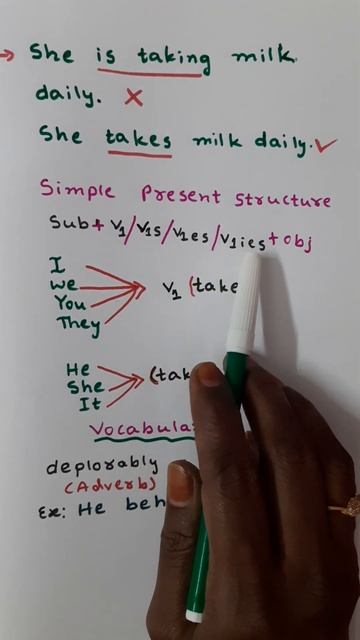 → She is taking milk
daily. ✗
She takes milk daily. ✓
Simple Present Structure
Sub + V1/V1s/V1es/V1ies + obj
I
We
You
They
V1 (take
He
She
It
deplorably
(Adverb)
Ex: He